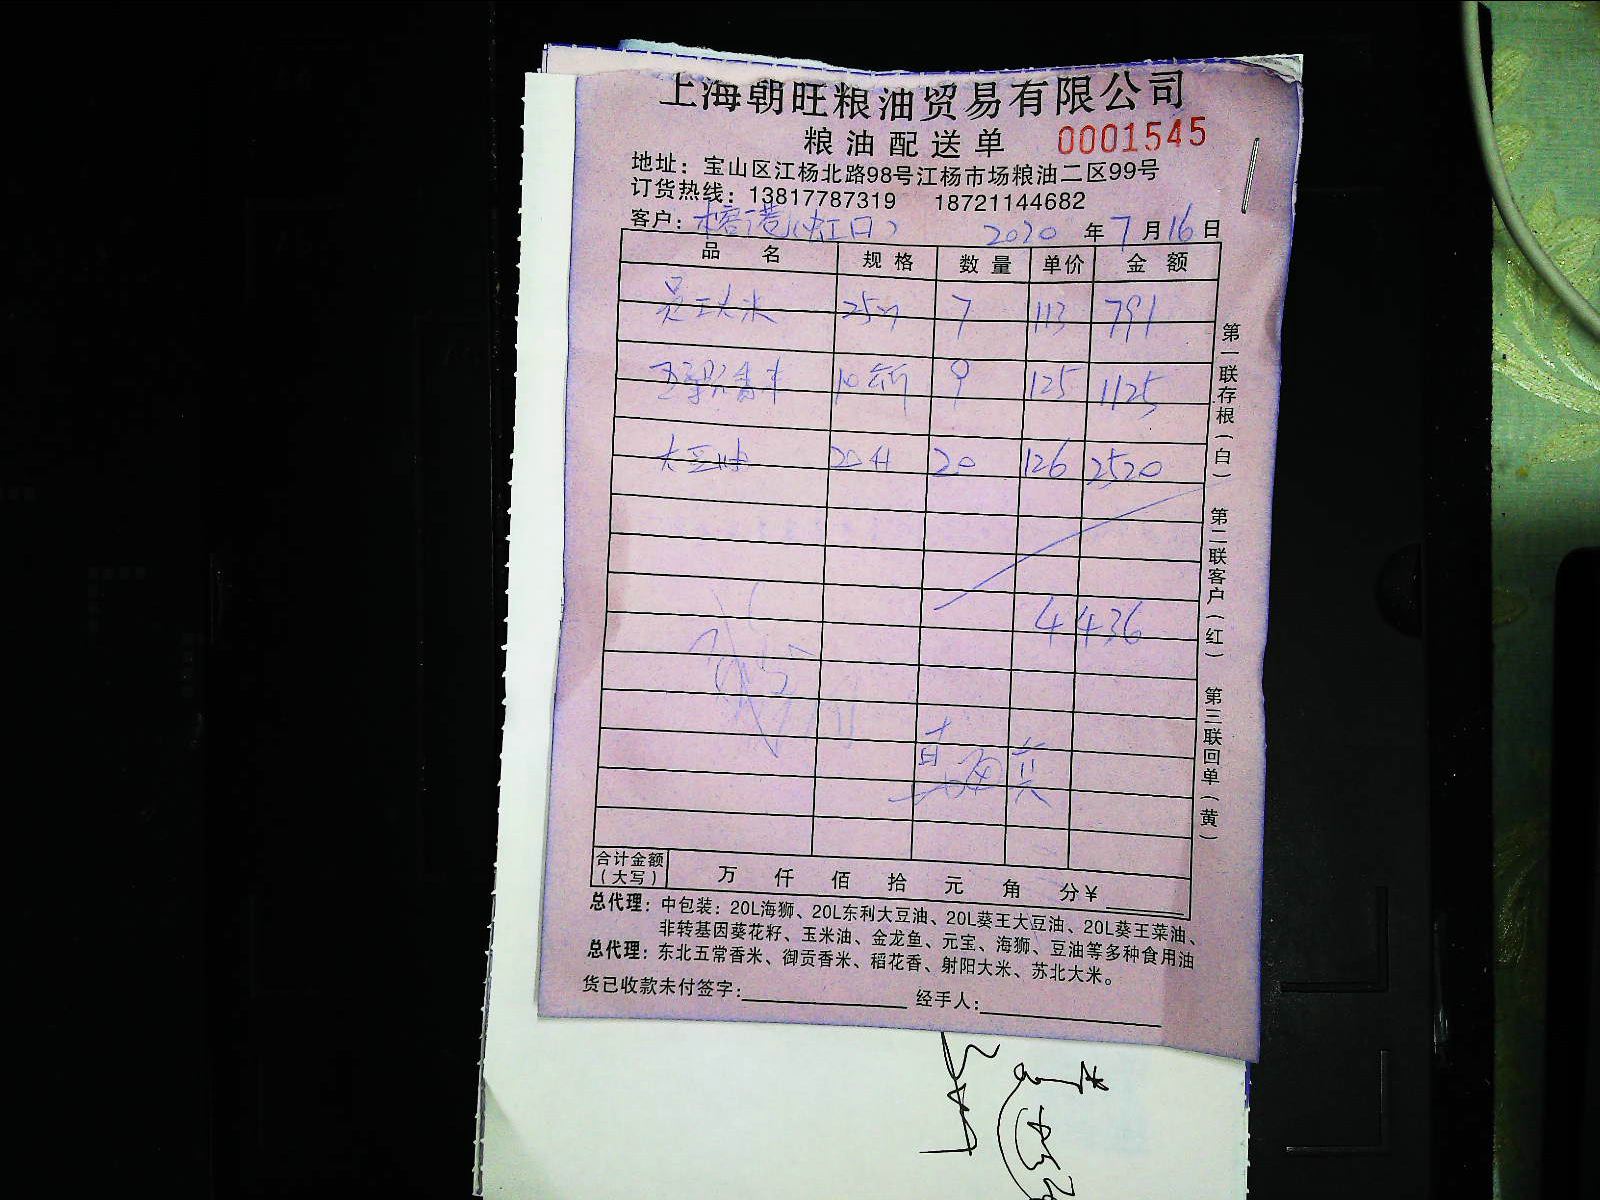 上海朝旺粮油贸易有限公司
粮油配送单 0001545
地址：宝山区江杨北路98号江杨市场粮油二区99号
订货热线：13817787319 18721144682
客户：榕港(虹口) 2020 年 7 月 16 日
品 名 规 格 数 量 单价 金 额
员工大米 25 7 113 791
香米 10斤 9 125 1125
大豆油 20升 20 126 2520
4436
合计金额（大写） 万 仟 佰 拾 元 角 分￥
总代理：中包装：20L海狮、20L东利大豆油、20L葵王大豆油、20L葵王菜油、
非转基因葵花籽、玉米油、金龙鱼、元宝、海狮、豆油等多种食用油
总代理：东北五常香米、御贡香米、稻花香、射阳大米、苏北大米。
货已收款未付签字： 经手人：
第一联存根（白）
第二联客户（红）
第三联回单（黄）